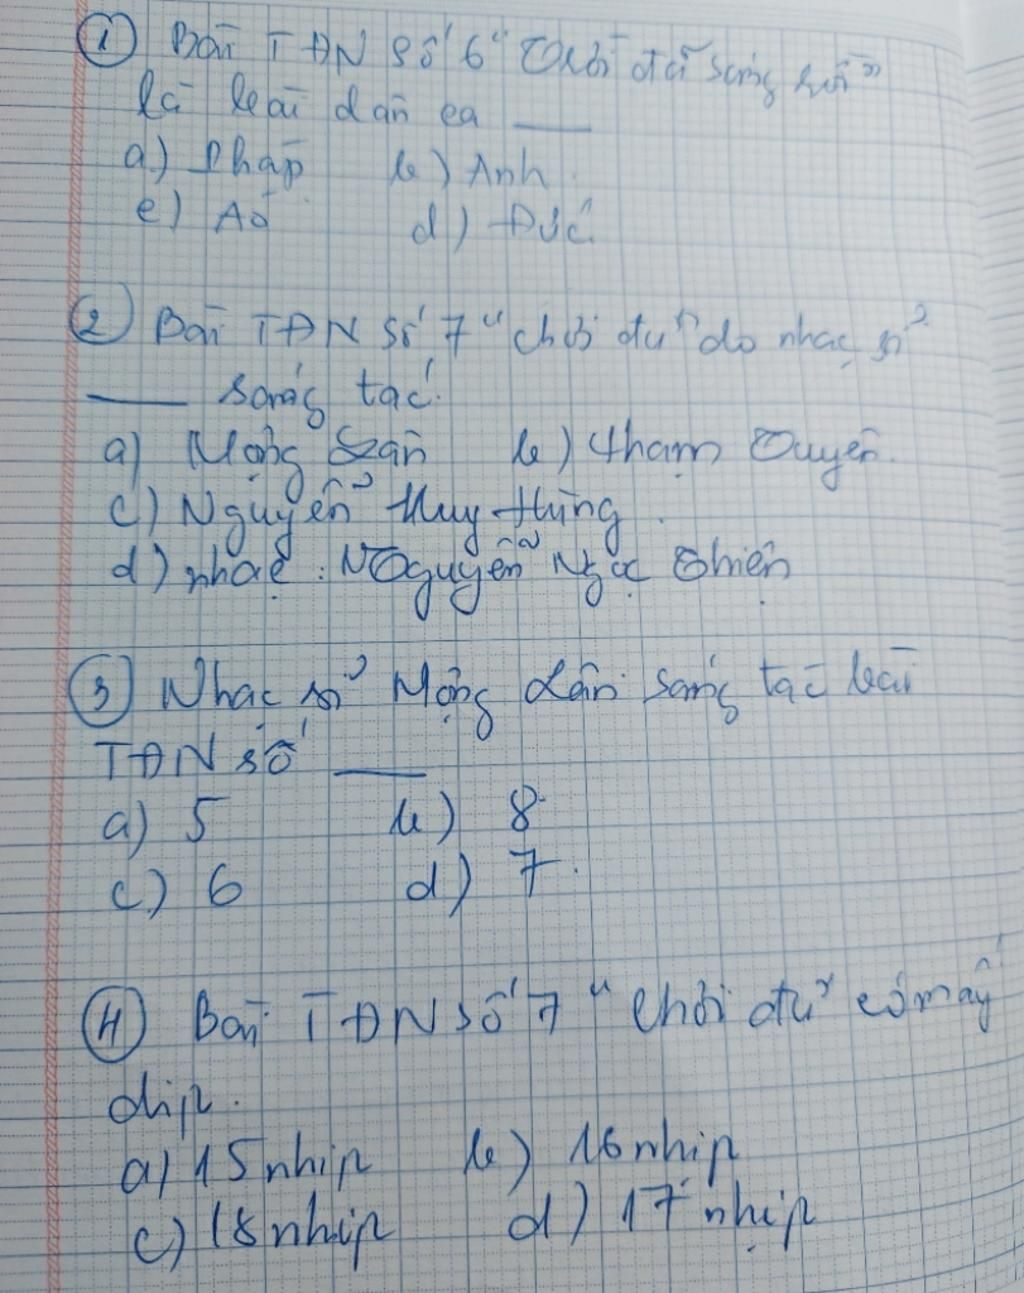 ① Bài TĐN số 6 " Trời đã sáng rồi "
là bài dân ca ___
a) Pháp b) Anh
c) Áo d) Đức.
② Bài TĐN số 7 " Chơi đu " do nhạc sĩ
___ sáng tác.
a) Mộng Lân b) Phạm Tuyên.
c) Nguyễn Huy Hùng.
d) nhạc: Nguyễn Ngọc Thiện
③ Nhạc sĩ Mộng Lân sáng tác bài
TĐN số ___
a) 5 b) 8
c) 6 d) 7.
④ Bài TĐN số 7 " Chơi đu " có mấy
nhịp.
a) 15 nhịp b) 16 nhịp
c) 18 nhịp d) 17 nhịp